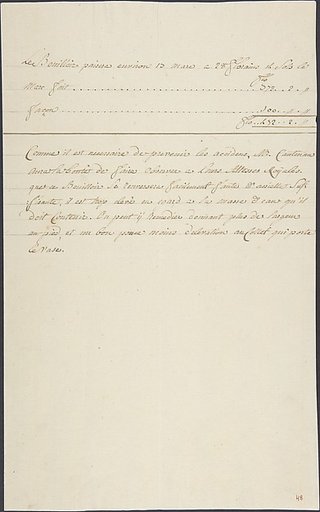 Le Bouilloir pesera environ 13 Marc a 28 florains 12 Sols le
Marc fait . . . . . . . . . . . . . . . . . . . . . . . 372 . . 2 . "
façon . . . . . . . . . . . . . . . . . . . . . . . . 100 . " . "
Flo . . 2 . "
Comme il est necessaire de prevenir les accidens, Mr.
aura la bonté de faire observer a Leurs Altesses Royalles,
que ce Bouilloir se renversera facilement faute d'assiette Suf-
fisante, il est trop élevé en egard a la masse d'eau qu'il
doit Contenir. On peut y remedier donnant plus de largeur
au pied, et un bon pouce moins d'elevation au Collet qui porte
le Vase.
48